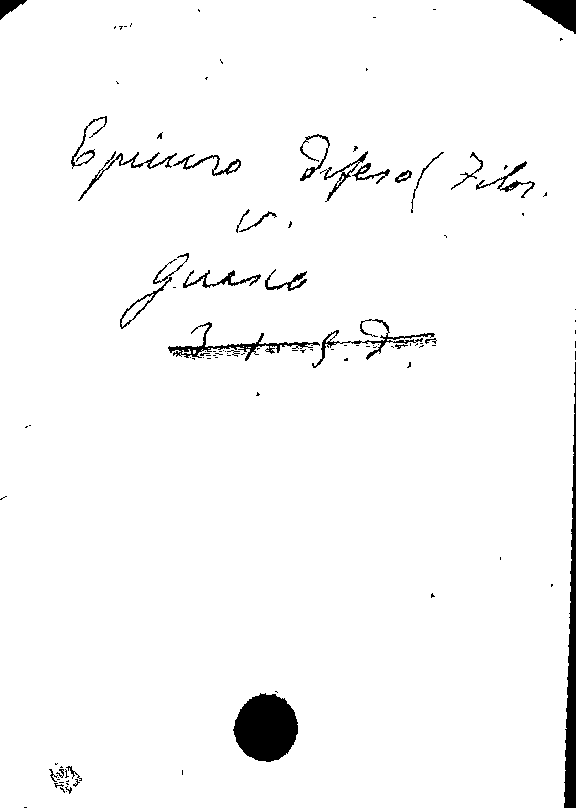 Epicuro Difeso (Filos.
v.
Guasco